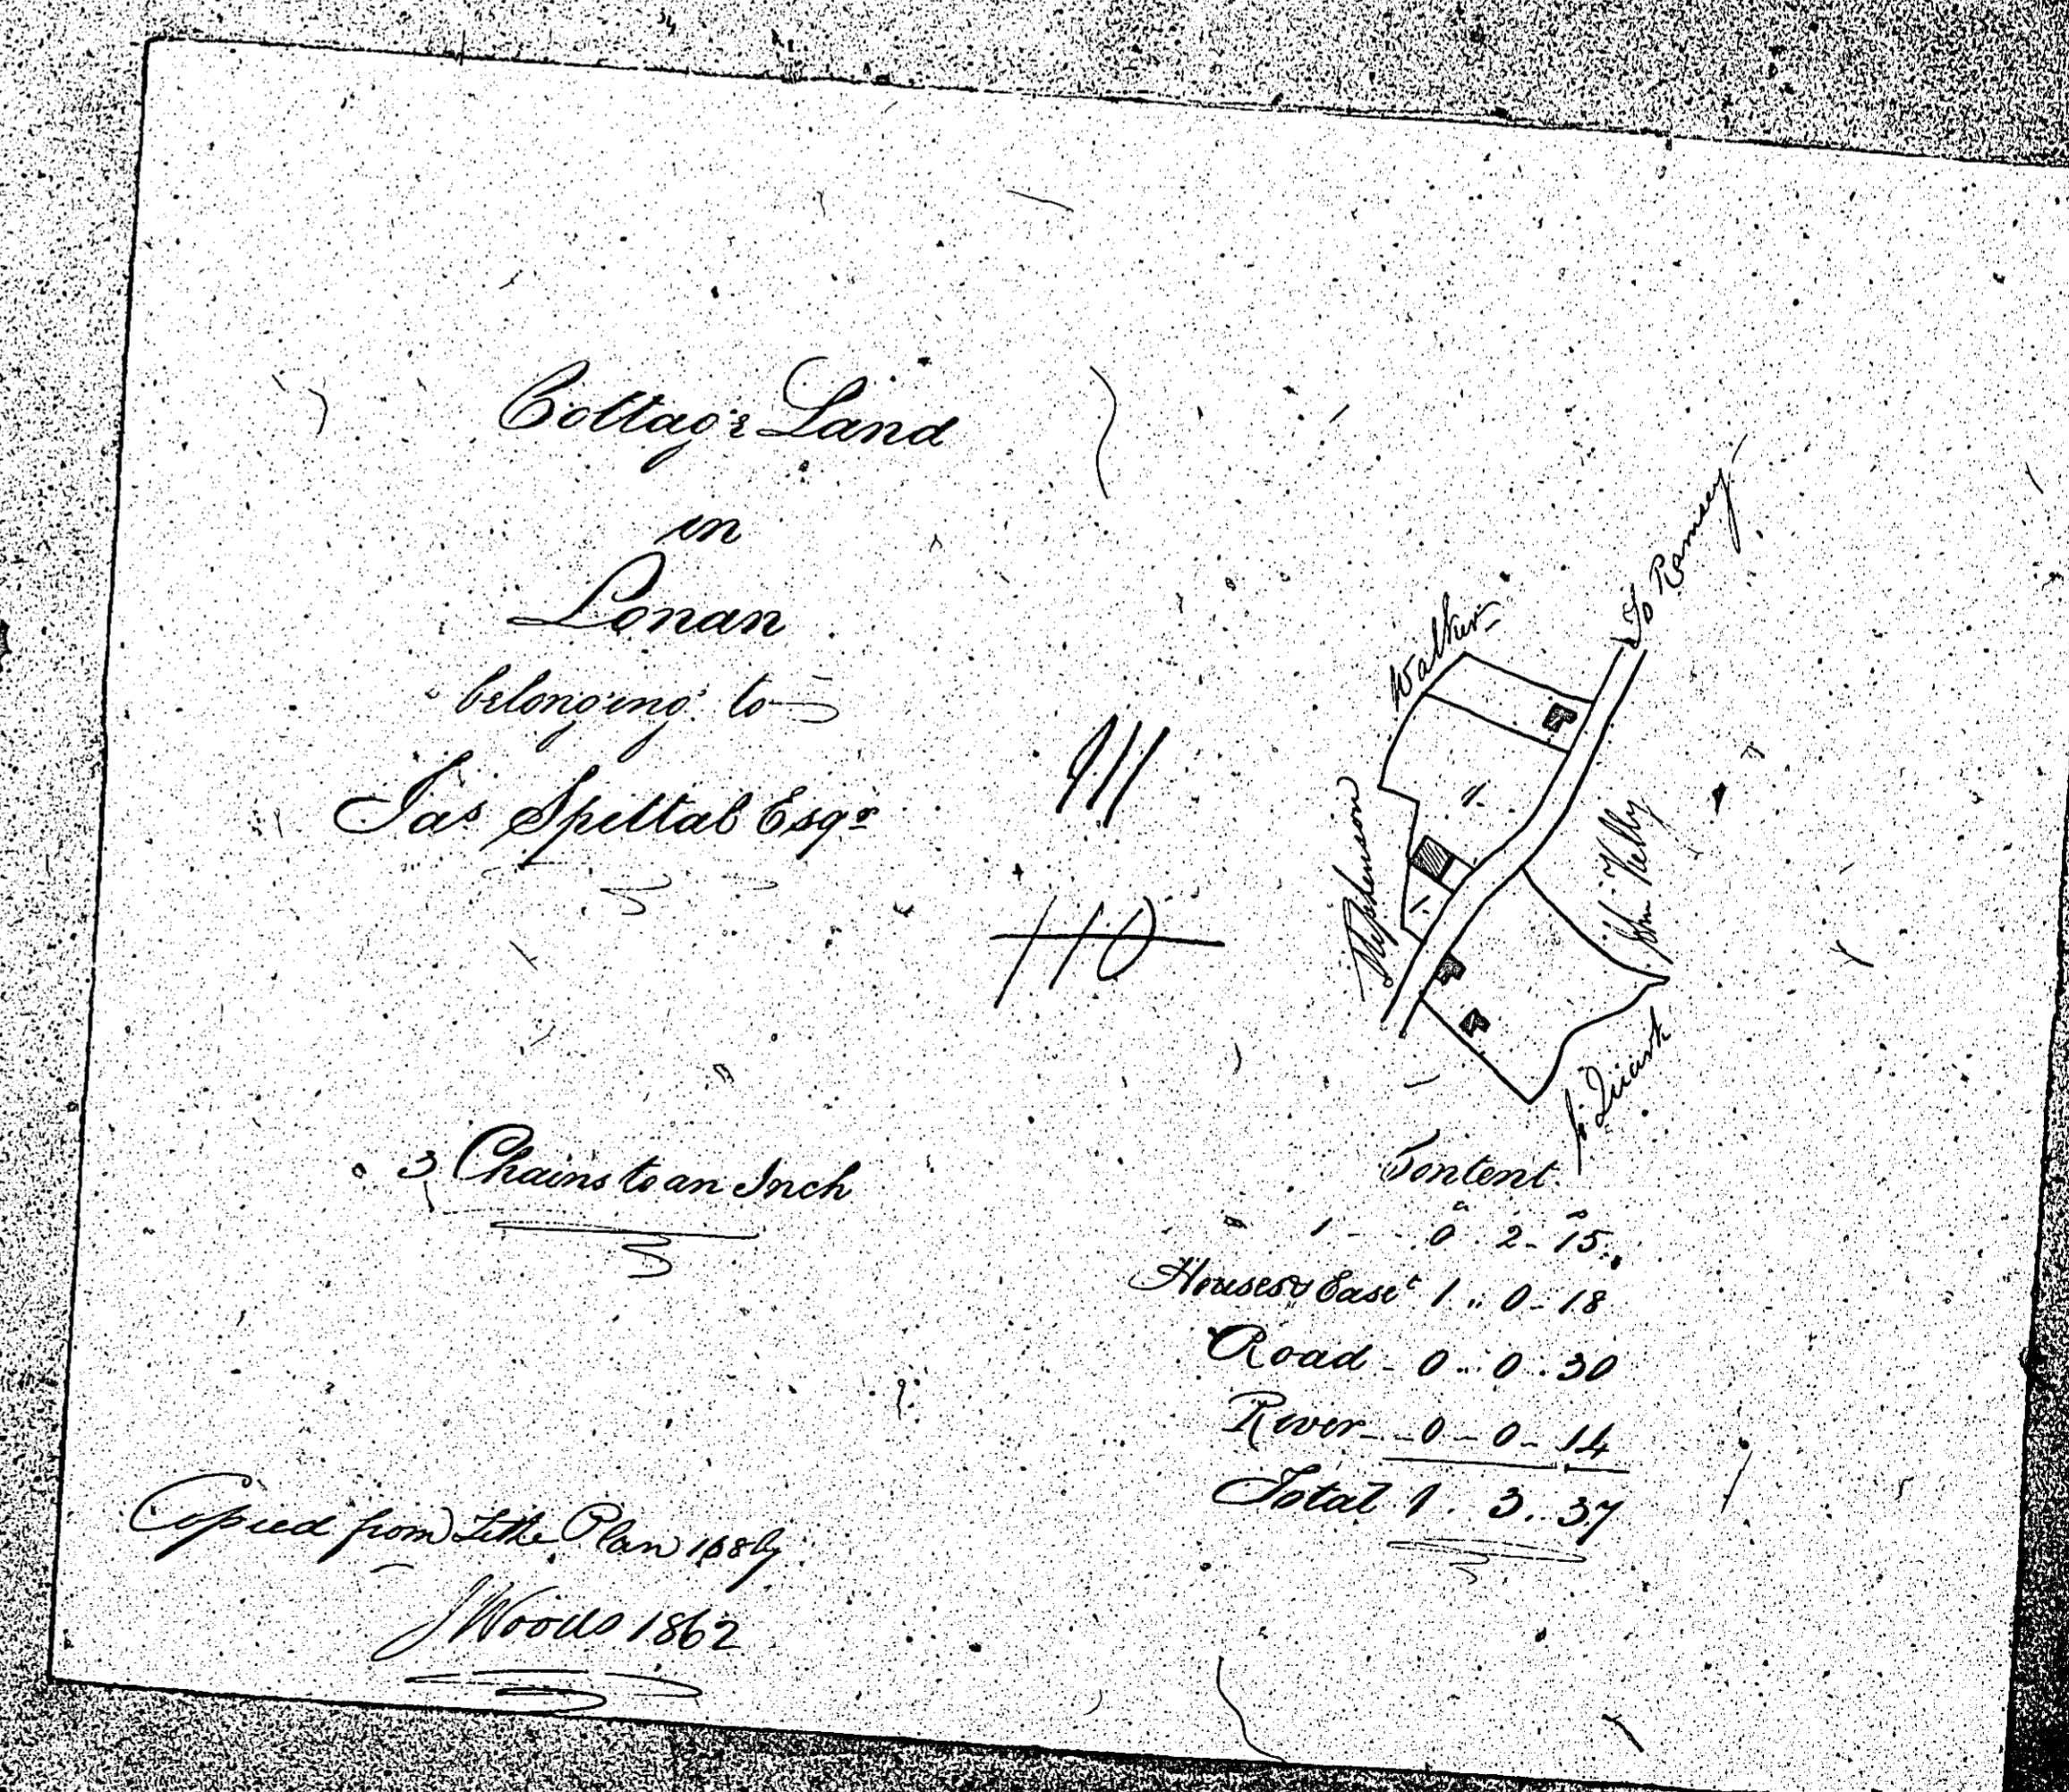 Cottage Land
in
Lonan
belonging to
Jas Spittal Esqr
111
110
3 Chains to an Inch
Copied from Tithe Plan 168 by
J Woods 1862
To Ramsey
Walker
Stephenson
John Kelly
Quark
1
1
Content
a " p
1 - - 0 . 2 - 15
Houses & Easet 1 .. 0 - 18
Road - 0 .. 0 . 30
River - - 0 - 0 - 14
Total 1 . 3 .. 37